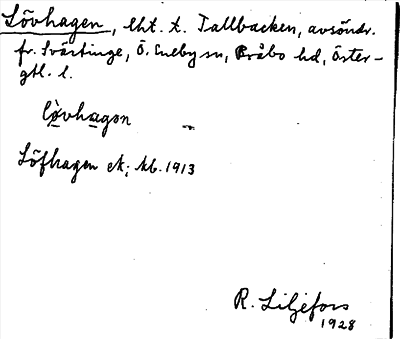 Lövhagen, lht. t. Tallbacken, avsöndr.
fr. Svärtinge, Ö. Eneby sn, Bråbo hd, Öster-
gtl. l.
lòvhagən
Löfhagen ek; kb. 1913
R. Liljefors
1928